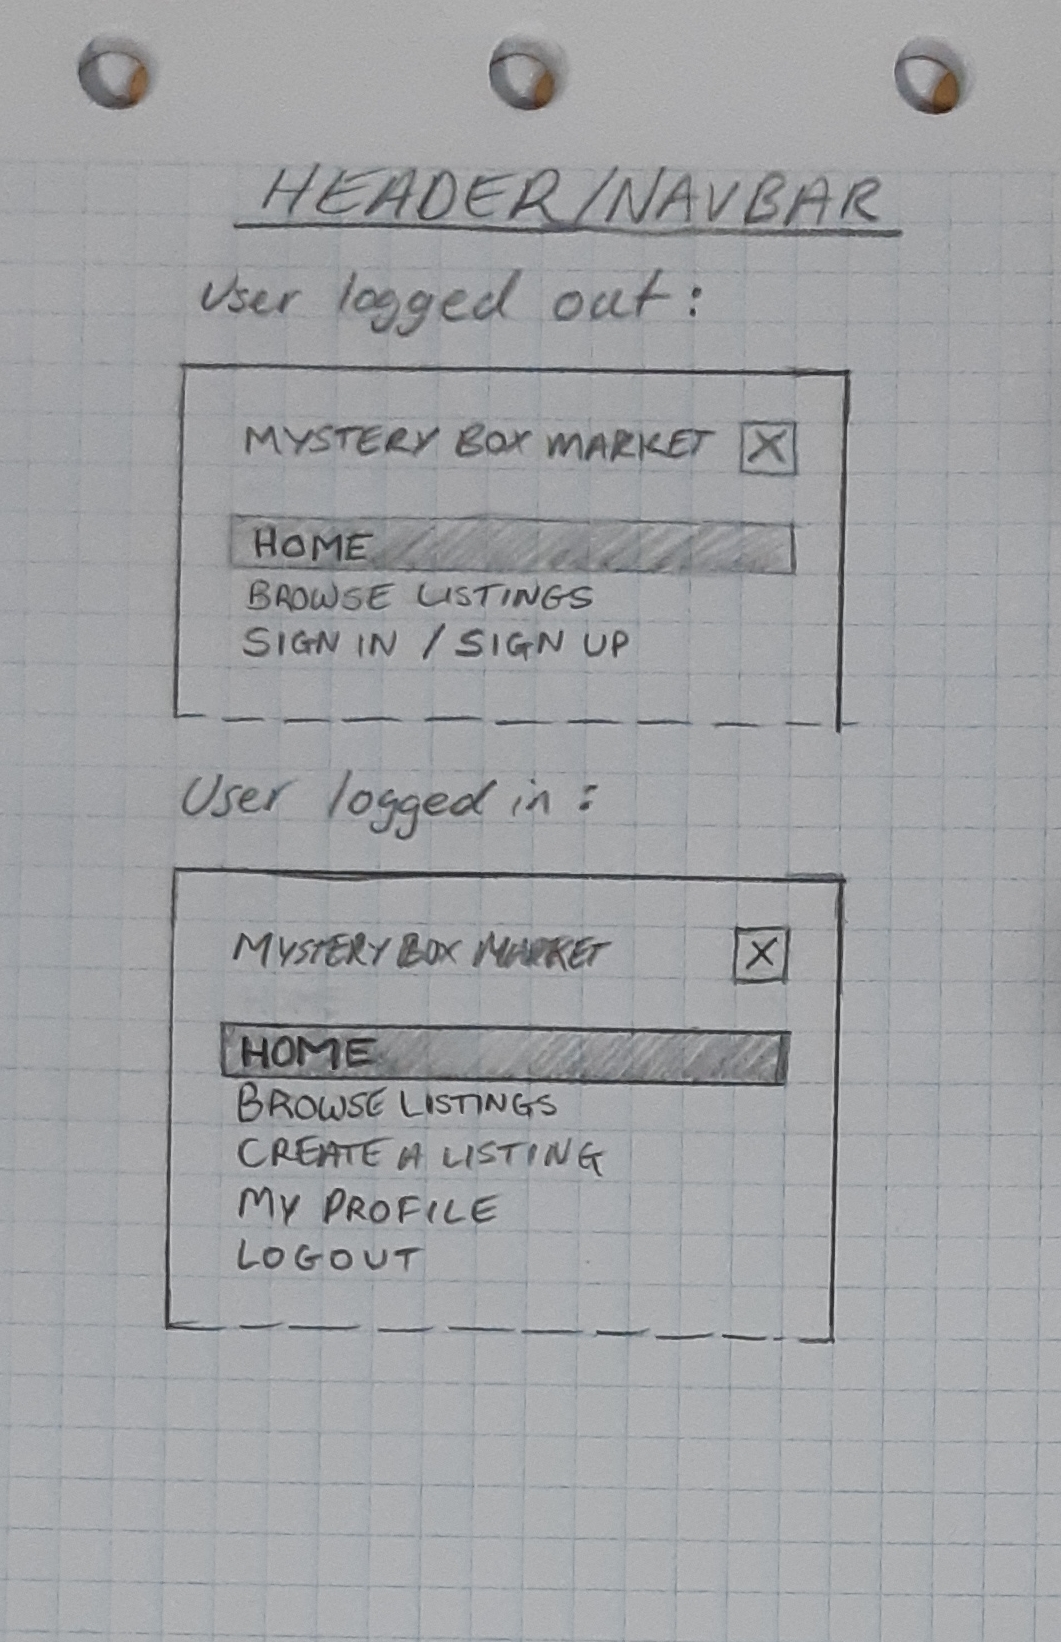 HEADER/NAVBAR
User logged out:
MYSTERY BOX MARKET X
HOME
BROWSE LISTINGS
SIGN IN / SIGN UP
User logged in:
MYSTERY BOX MARKET X
HOME
BROWSE LISTINGS
CREATE A LISTING
MY PROFILE
LOGOUT